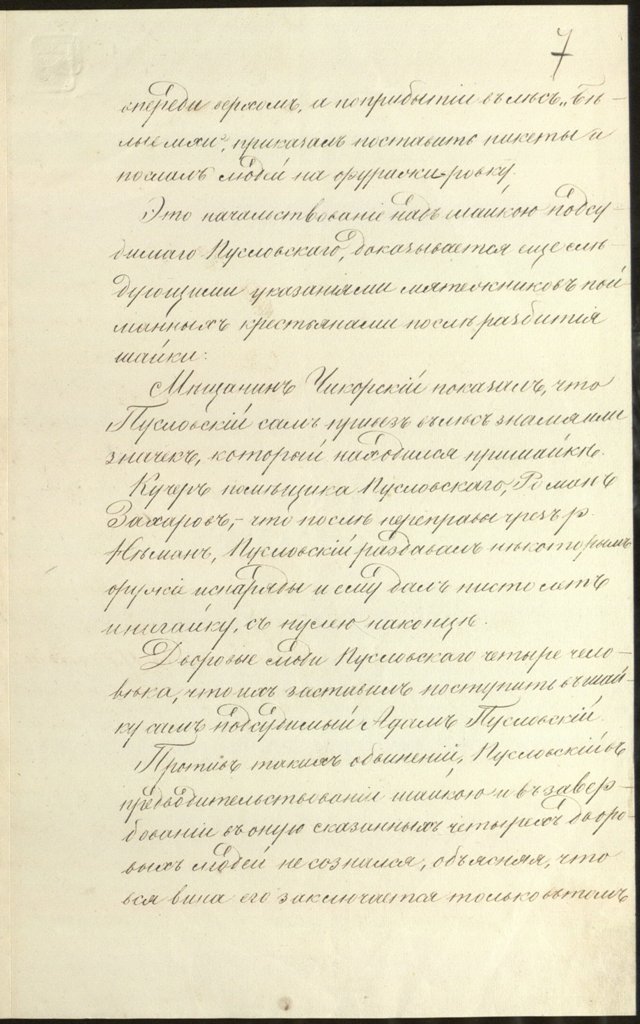 7
впереди верхомъ, и по прибытіи въ лѣсъ „Бѣ-
лые мхи", приказалъ поставить пикеты и
послалъ людей на фуражи-ровку.
Это начальствованіе надъ шайкою подсу-
димаго Пусловскаго, доказывается еще слѣ-
дующими указаніями мятежниковъ пой-
манныхъ крестьянами послѣ разбитія
шайки:
Мѣщанинъ Чикорскій показалъ, что
Пусловскій самъ привезъ въ лѣсъ знамя или
значекъ, который находился при шайкѣ.
Кучеръ помѣщика Пусловскаго, Романъ
Захаровъ,- что послѣ переправы чрезъ р.
Нѣманъ, Пусловскій раздавалъ нѣкоторымъ
оружіе и снаряды и ему далъ пистолетъ
и нагайку, съ пулею на концѣ.
Дворовые люди Пусловскаго четыре чело-
вѣка, что ихъ заставилъ поступить въ шай-
ку самъ подсудимый Адамъ Пусловскій.
Противъ такихъ обвиненій, Пусловскій въ
предводительствованіи шайкою и въ завер-
бованіи въ оную сказанныхъ четырехъ дворо-
выхъ людей не сознался, объясняя, что
вся вина его заключается только въ томъ